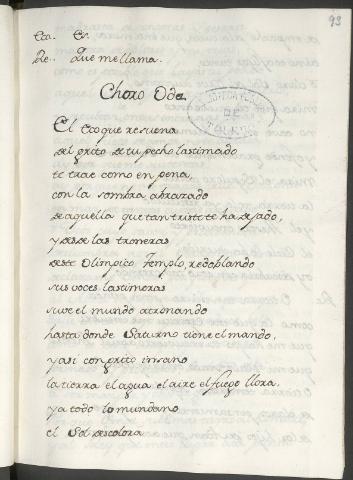 93
Eco. Es.
Re. Que me llama.
Choro Oda.
El Eco que resuena
del grito de tu pecho lastimado
te trae como en pena,
con la sombra abrazado
de aquella que tan triste te ha dejado,
y desde las troneras
deste Olimpico Templo, redoblando
sus voces lastimeras
sube el mundo atronando
hasta donde Saturno tiene el mando,
y asi con grito
la tierra el agua el aire el fuego llora,
ya todo lo mundano
el Sol descolora